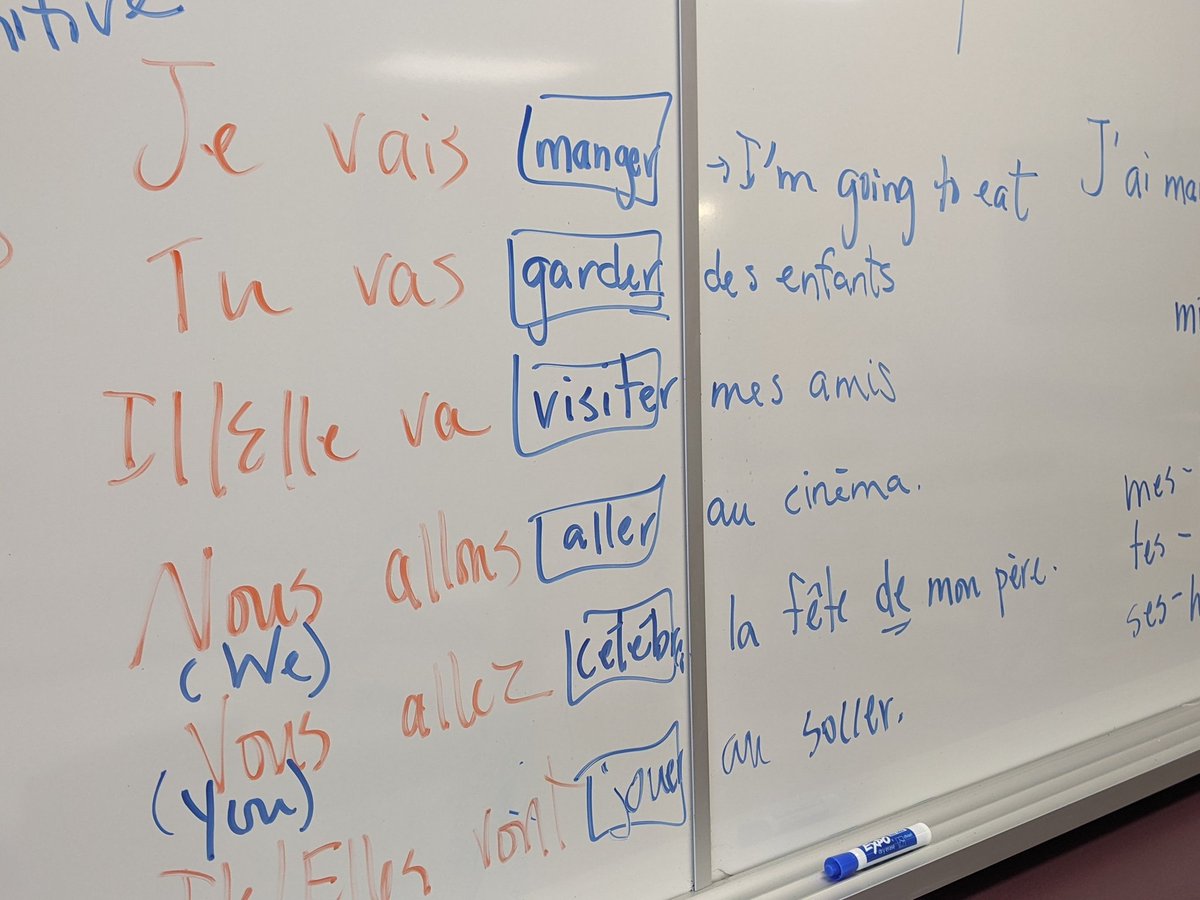 Je vais manger → I'm going to eat J'ai ma
Tu vas garder des enfants
mi
Il/Elle va visiter mes amis
Nous allons aller au cinéma.
mes-
tes-
ses-h
(We)
Vous allez célébre la fête de mon père.
(You)
Ils/Elles voint jouer au soller.
EXPO